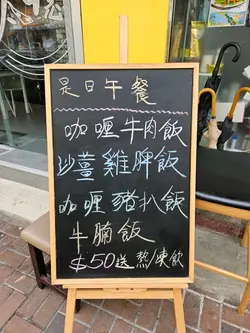 是日午餐
咖喱牛肉飯
沙薑雞脾飯
咖喱豬扒飯
牛腩飯
$50送熱/凍飲